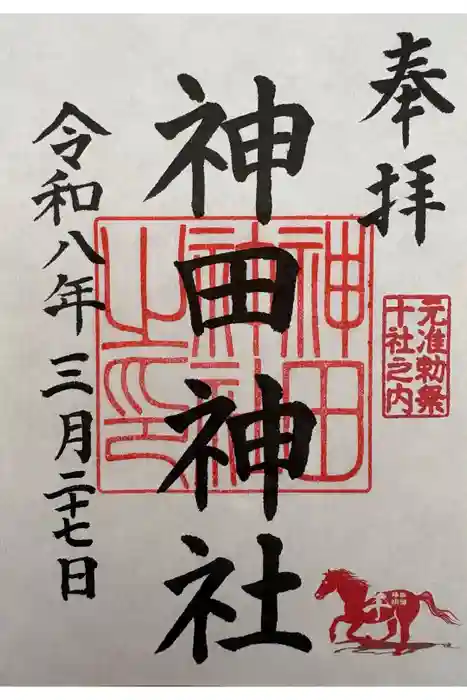 奉拝
元准勅祭
十社之内
神田神社
神田
神社
之印
令和八年三月二十七日